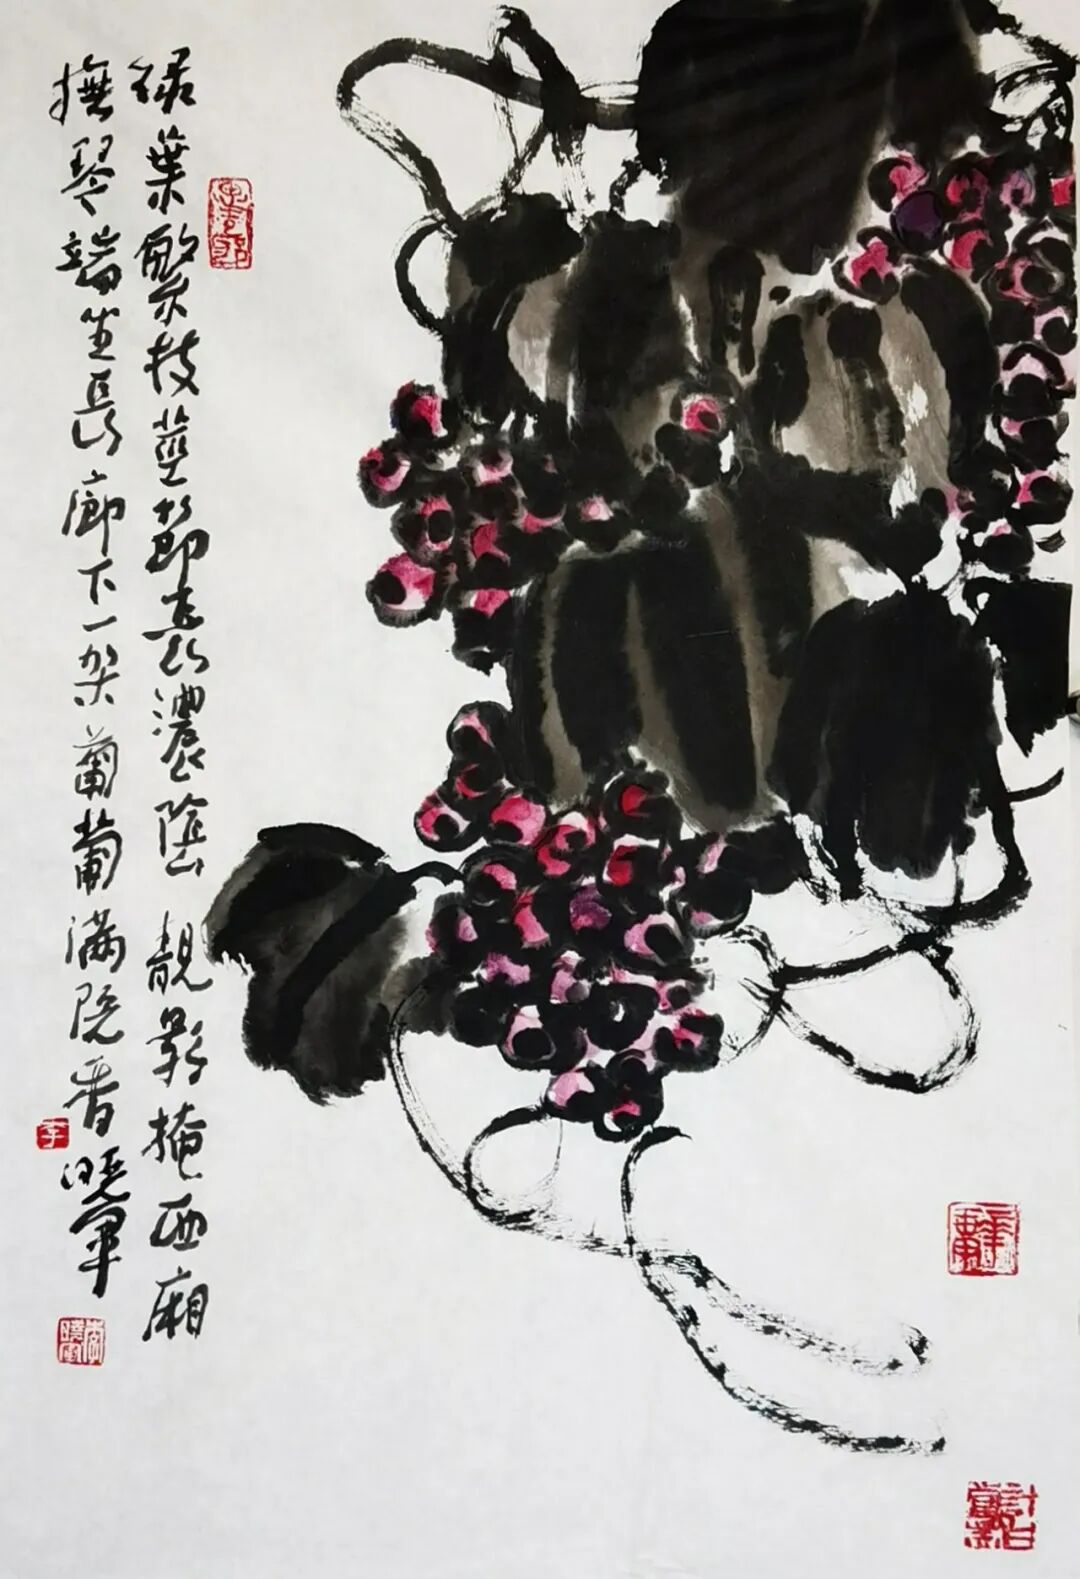 绿葉繁枝莖節長濃陰靚影掩西廂
撫琴端坐長廊下一架葡萄满院香 晓軍
李